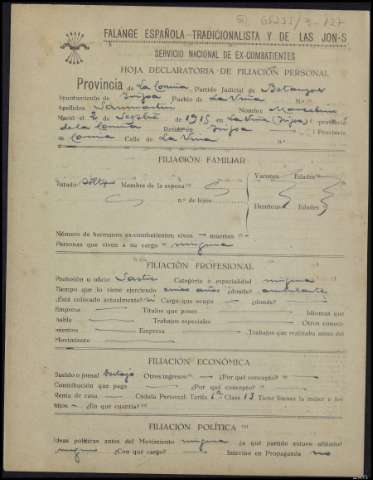 FALANGE ESPAÑOLA TRADICIONALISTA Y DE LAS JON-S
SERVICIO NACIONAL DE EX-COMBATIENTES
HOJA DECLARATORIA DE FILIACIÓN PERSONAL
Provincia de La Coruña Partido Judicial de Betanzos
Ayuntamiento de Irijoa Pueblo de La Viña N.º
Apellidos Sanmartin Nombre Marcelino
Nació el 2 de 1915 en La Viña (Irijoa) provincia
de La Coruña Residencia Irijoa Provincia
Coruña Calle de La Viña
FILIACIÓN FAMILIAR
Estado Soltero Nombre de la esposa
n.º de hijos
Varones Edades
Hembras Edades
Número de hermanos ex-combatientes, vivos muertos
Personas que viven a su cargo ninguna
FILIACIÓN PROFESIONAL
Profesión u oficio Sastre Categoría o especialidad ninguna
Tiempo que lo viene ejerciendo años ¿dónde? ambulante
¿Está colocado actualmente? si Cargo que ocupa ¿dónde?
Empresa Títulos que posee Idiomas que
habla Trabajos especiales Otros conoci-
mientos Empresa Trabajos que realizaba antes del
Movimiento
FILIACIÓN ECONÓMICA
Sueldo o jornal Otros ingresos ¿Por qué concepto?
Contribución que paga ¿Por qué concepto?
Renta de casa Cédula Personal Tarifa 1ª Clase 13 Tiene bienes la mujer o los
hijos ¿En qué cuantía?
FILIACIÓN POLÍTICA
Ideas políticas antes del Movimiento ninguna ¿a qué partido estuvo afiliado?
ninguno ¿Con qué cargo? Intervino en Propaganda no